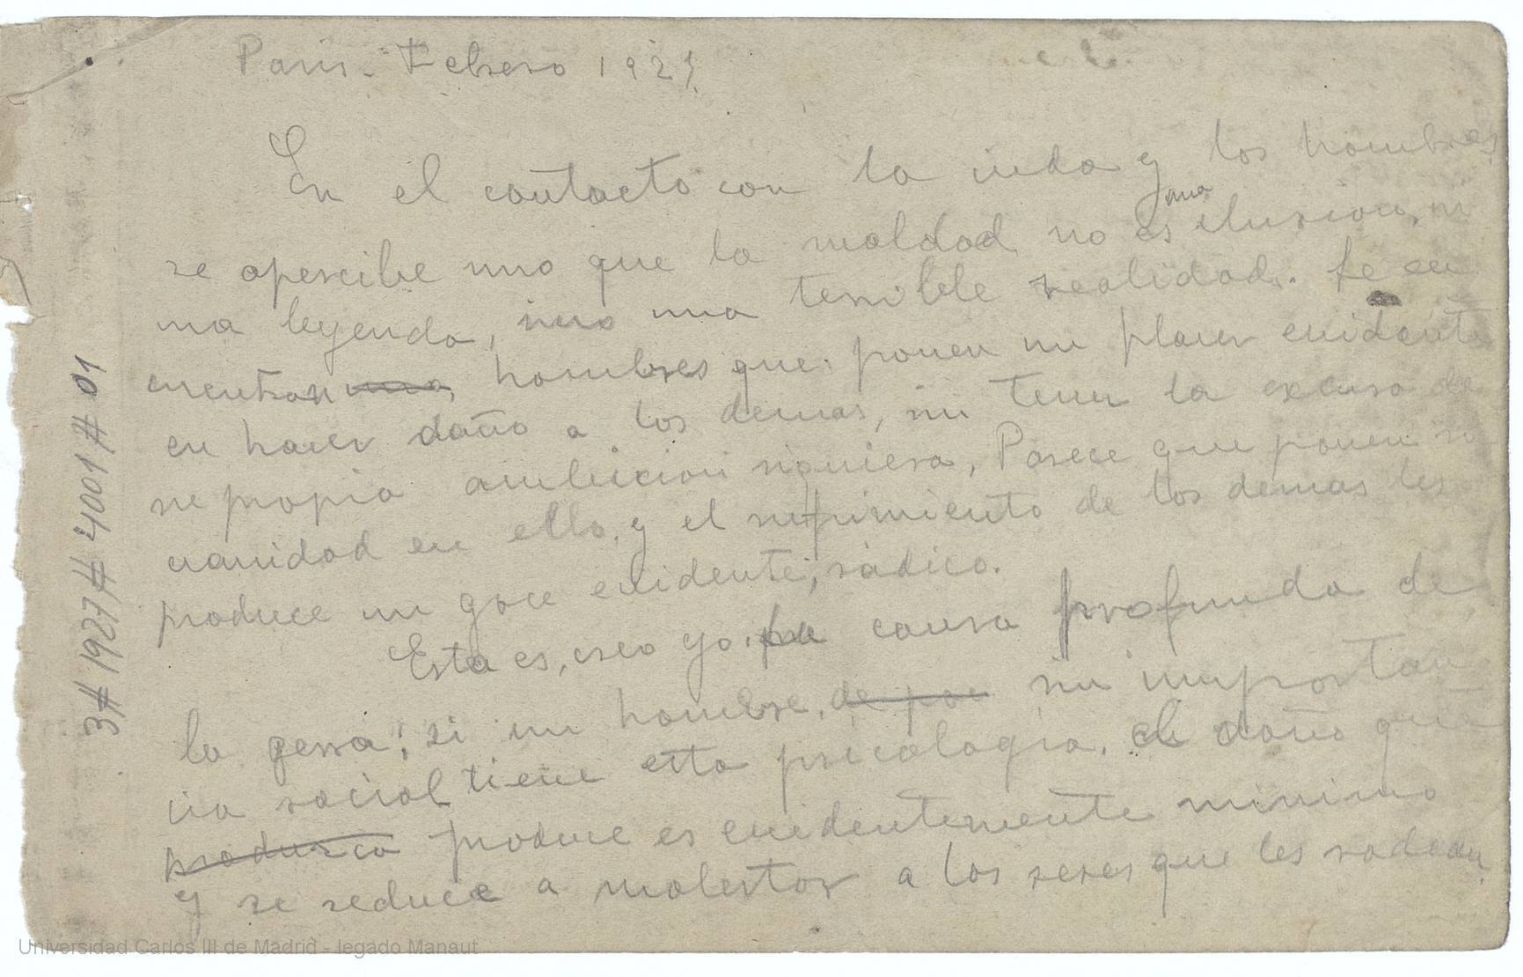 Paris. Febrero 1927
En el contacto con la vida y los hombres,
se apercibe uno que la maldad no es una ilusion, ni
una leyenda, sino una terrible realidad. Se en
cuentran una, hombres que ponen un placer evidente
en hacer daño a los demas, sin tener la excusa de
su propia ambicion siquiera, Parece que ponen su
vanidad en ello, y el sufrimiento de los demas les
produce un goce evidente, sádico.
Esta es, creo yo, la causa profunda de
la gerra; si un hombre, de poe sin importan
cia social tiene esta psicologia, el daño que
produzca produce es evidentemente minimo
y se reduce a molestar a los seres que les rodean,
3#1927#4001#01
Universidad Carlos III de Madrid - legado Manaut